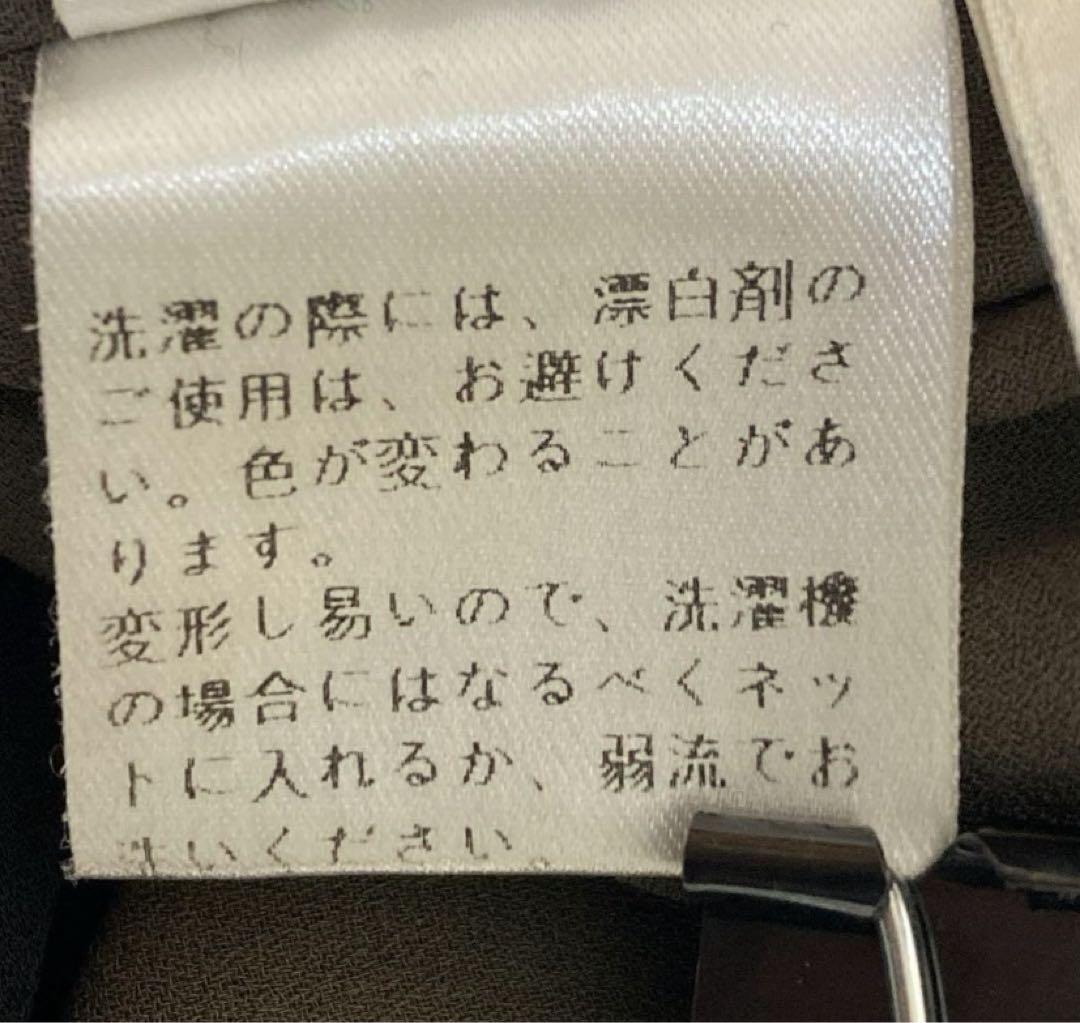 洗濯の際には、漂白剤の
ご使用は、お避けくださ
い。色が変わることがあ
ります。
変形し易いので、洗濯機
の場合にはなるべくネッ
トに入れるか、弱流でお
洗いください。